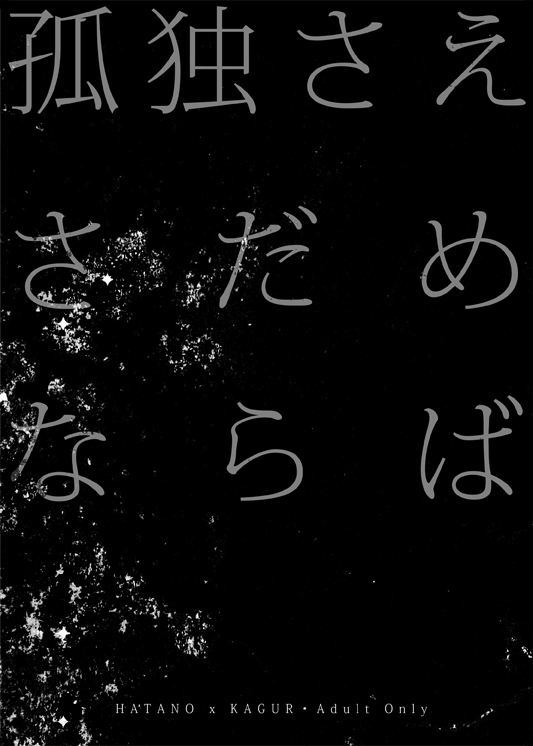 孤独さえ
さだめ
ならば
HATANO x KAGUR・Adult Only